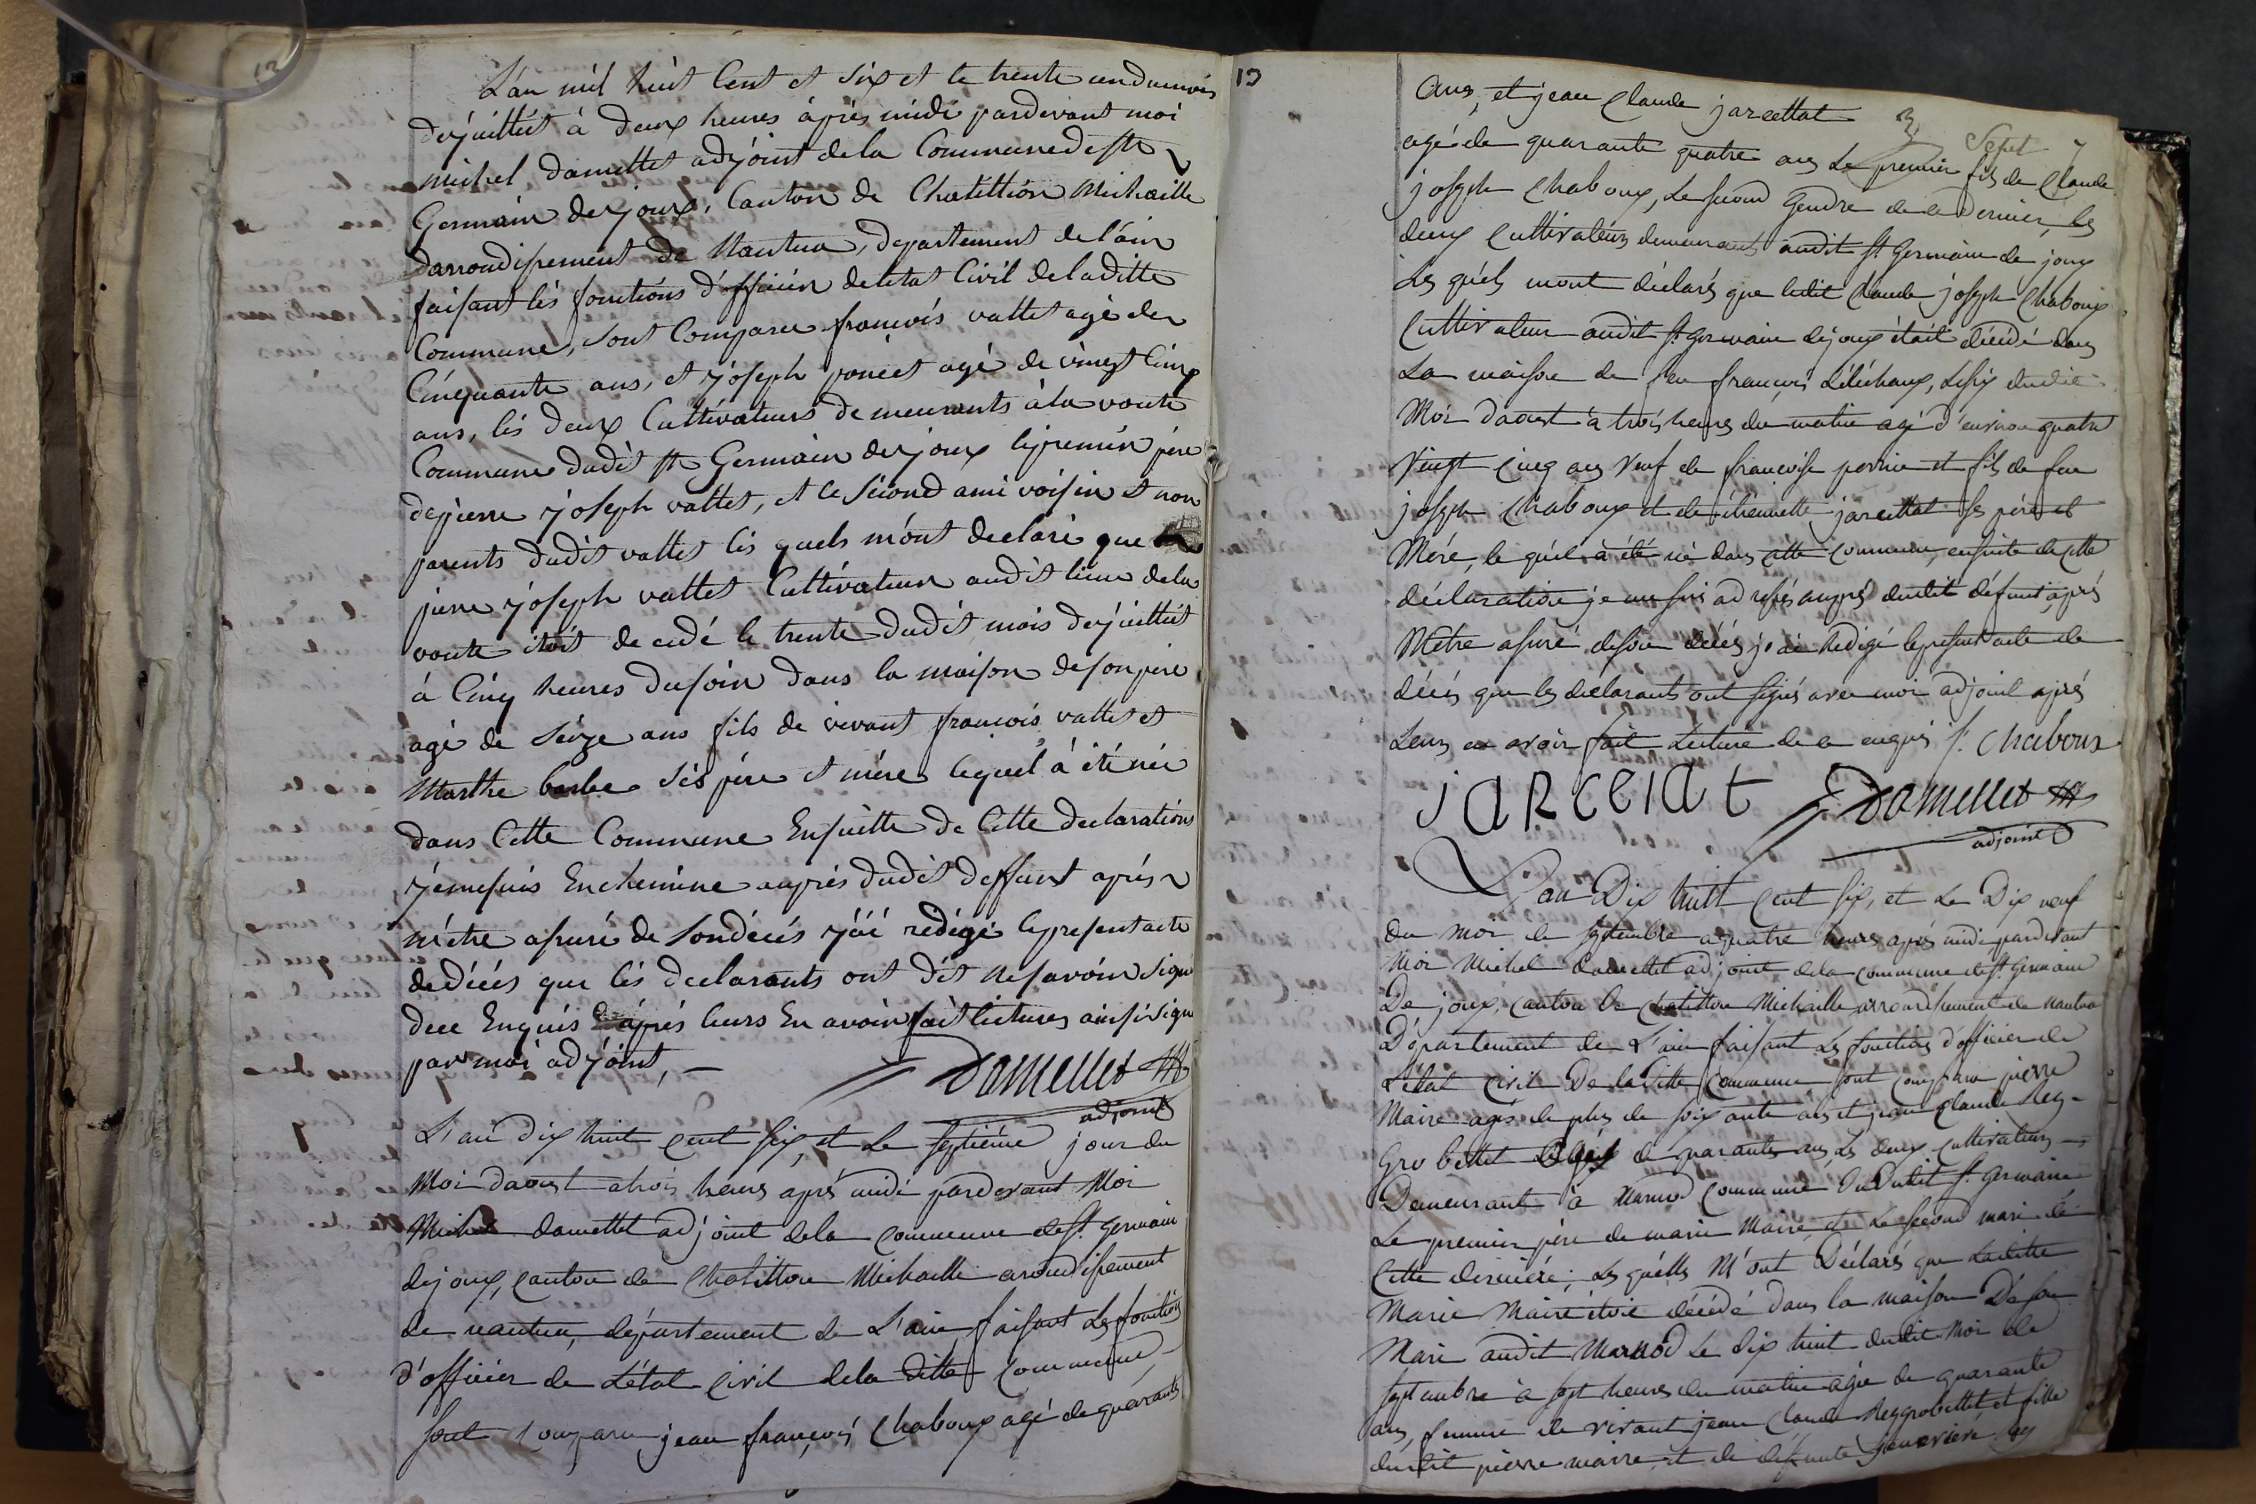 12
L'an mil huit Cent et six et le trente un du mois
dejuilliet à deux heures après midi pardevant moi
michel damellet adjoint dela Commune de st
Germain dejoux, Canton de Chatillion Michaille
darrondissement de Nantua, departement de l'ain
faisant lés fonctions d'officiér deletat Civil deladitte
Commune, sont Comparu francois vallet agé de
Cinquante ans, et joseph poncet agé de vingt Cinq
ans, lés deux Cultivateurs demeurants àla voute
Commune dudit st Germain dejoux lepremiér pére
depierre joseph vallet, et le sécond ami voisin et non
parents dudit vallet lés quels m'ont declaré que
pierre joseph vallet Cultivateur audit lieu dela
voute étoit decedé le trente dudit mois dejuilliet
à Cinq heures dusoir dans la maison desonpére
agé de séize ans fils de vivant francois vallet et
Marthe barbe sés pére et mére lequel à été née
dans Cette Commune Ensuitte de Cette declaration
jemesuis Enchemine auprés dudit deffunt aprés
m'étre assuré de sondécés j'ái rédigé leprésentacte
dedécés que lés declarants ont dit nesavoir signé
dece Enquis aprés leurs En avoir fait lictures ainsi signé
par moi adjoint,
Damellet
adjoint
L'an dix huit cent six, et Le septiéme jour du
Moi daoust atrois heures aprés midi pardevant Moi
Michel damellet adjoint dela commune de st. Germain
dejoux, canton de Chatillon Michaille arondissement
de nantua, département de L'ain faisant Les fonctions
d'officier de L'état civil dela ditte commune,
sont comparu jean françois Chaboux agé de quarante
13
ans, et jean Claude jarcellat
3 Sept 7
agé de quarante quatre ans Le premier fils de Claude
joseph Chaboux, Le second Gendre de ce dernier, les
deux cultivateurs demeurants audit st Germain de joux
Les quéls mont déclarés que ledit Claude joseph Chaboux
Cultivateur audit st. Germain dejoux était décédé dans
La maison de feu françois Léléchaux, Le six dudit
Moi daoust à trois heures du matin agé d'environ quatre
Vingt cinq ans veuf de françoise perrine et fils de feu
joseph Chaboux et de étiennette jarcellat ses pére et
Mére, le quél à été né dans cette commune, ensuite de cette
déclaration je me suis adressé auprés dudit défunt, aprés
Métre assuré deson décés j'ai Redigé leprésent acte de
décés que les déclarants ont signés avec moi adjoint aprés
Leurs en avoir fait Lecture de ce enquis f. Chaboux
jARCElAt Damellet
adjoint
L'an Dix huit Cent six, et Le Dix neuf
du moi de septembre aquatre heures aprés midi pardevant
Moi Michel damellet adjoint dela commune de st. Germain
De joux, canton de Chatillon Michaille arrondissement de nantua
Département de L'ain faisant Les fonctions d'officier de
L'état civil De la Ditte Commune sont comparu pierre
Maire agé de plus de soixante ans et jean Claude Rey-
Grobellet agés de quarante ans, Les deux cultivateurs
Demeurant à Marnod commune Dudit st. Germain
Le premier pére de marie Maire, et Le second mari de
Cette derniére, Les quéls M'ont Déclarés que Laditte
Marie Maire étoit décédé dans la maison De son
Mari audit Marnod Le dix huit dudit Moi de
septembre à sept heures du matin agée de quarante
ans, femme de vivant jean Claude Reygrobellet et fille
dudit pierre maire, et de défunte Geneviéve